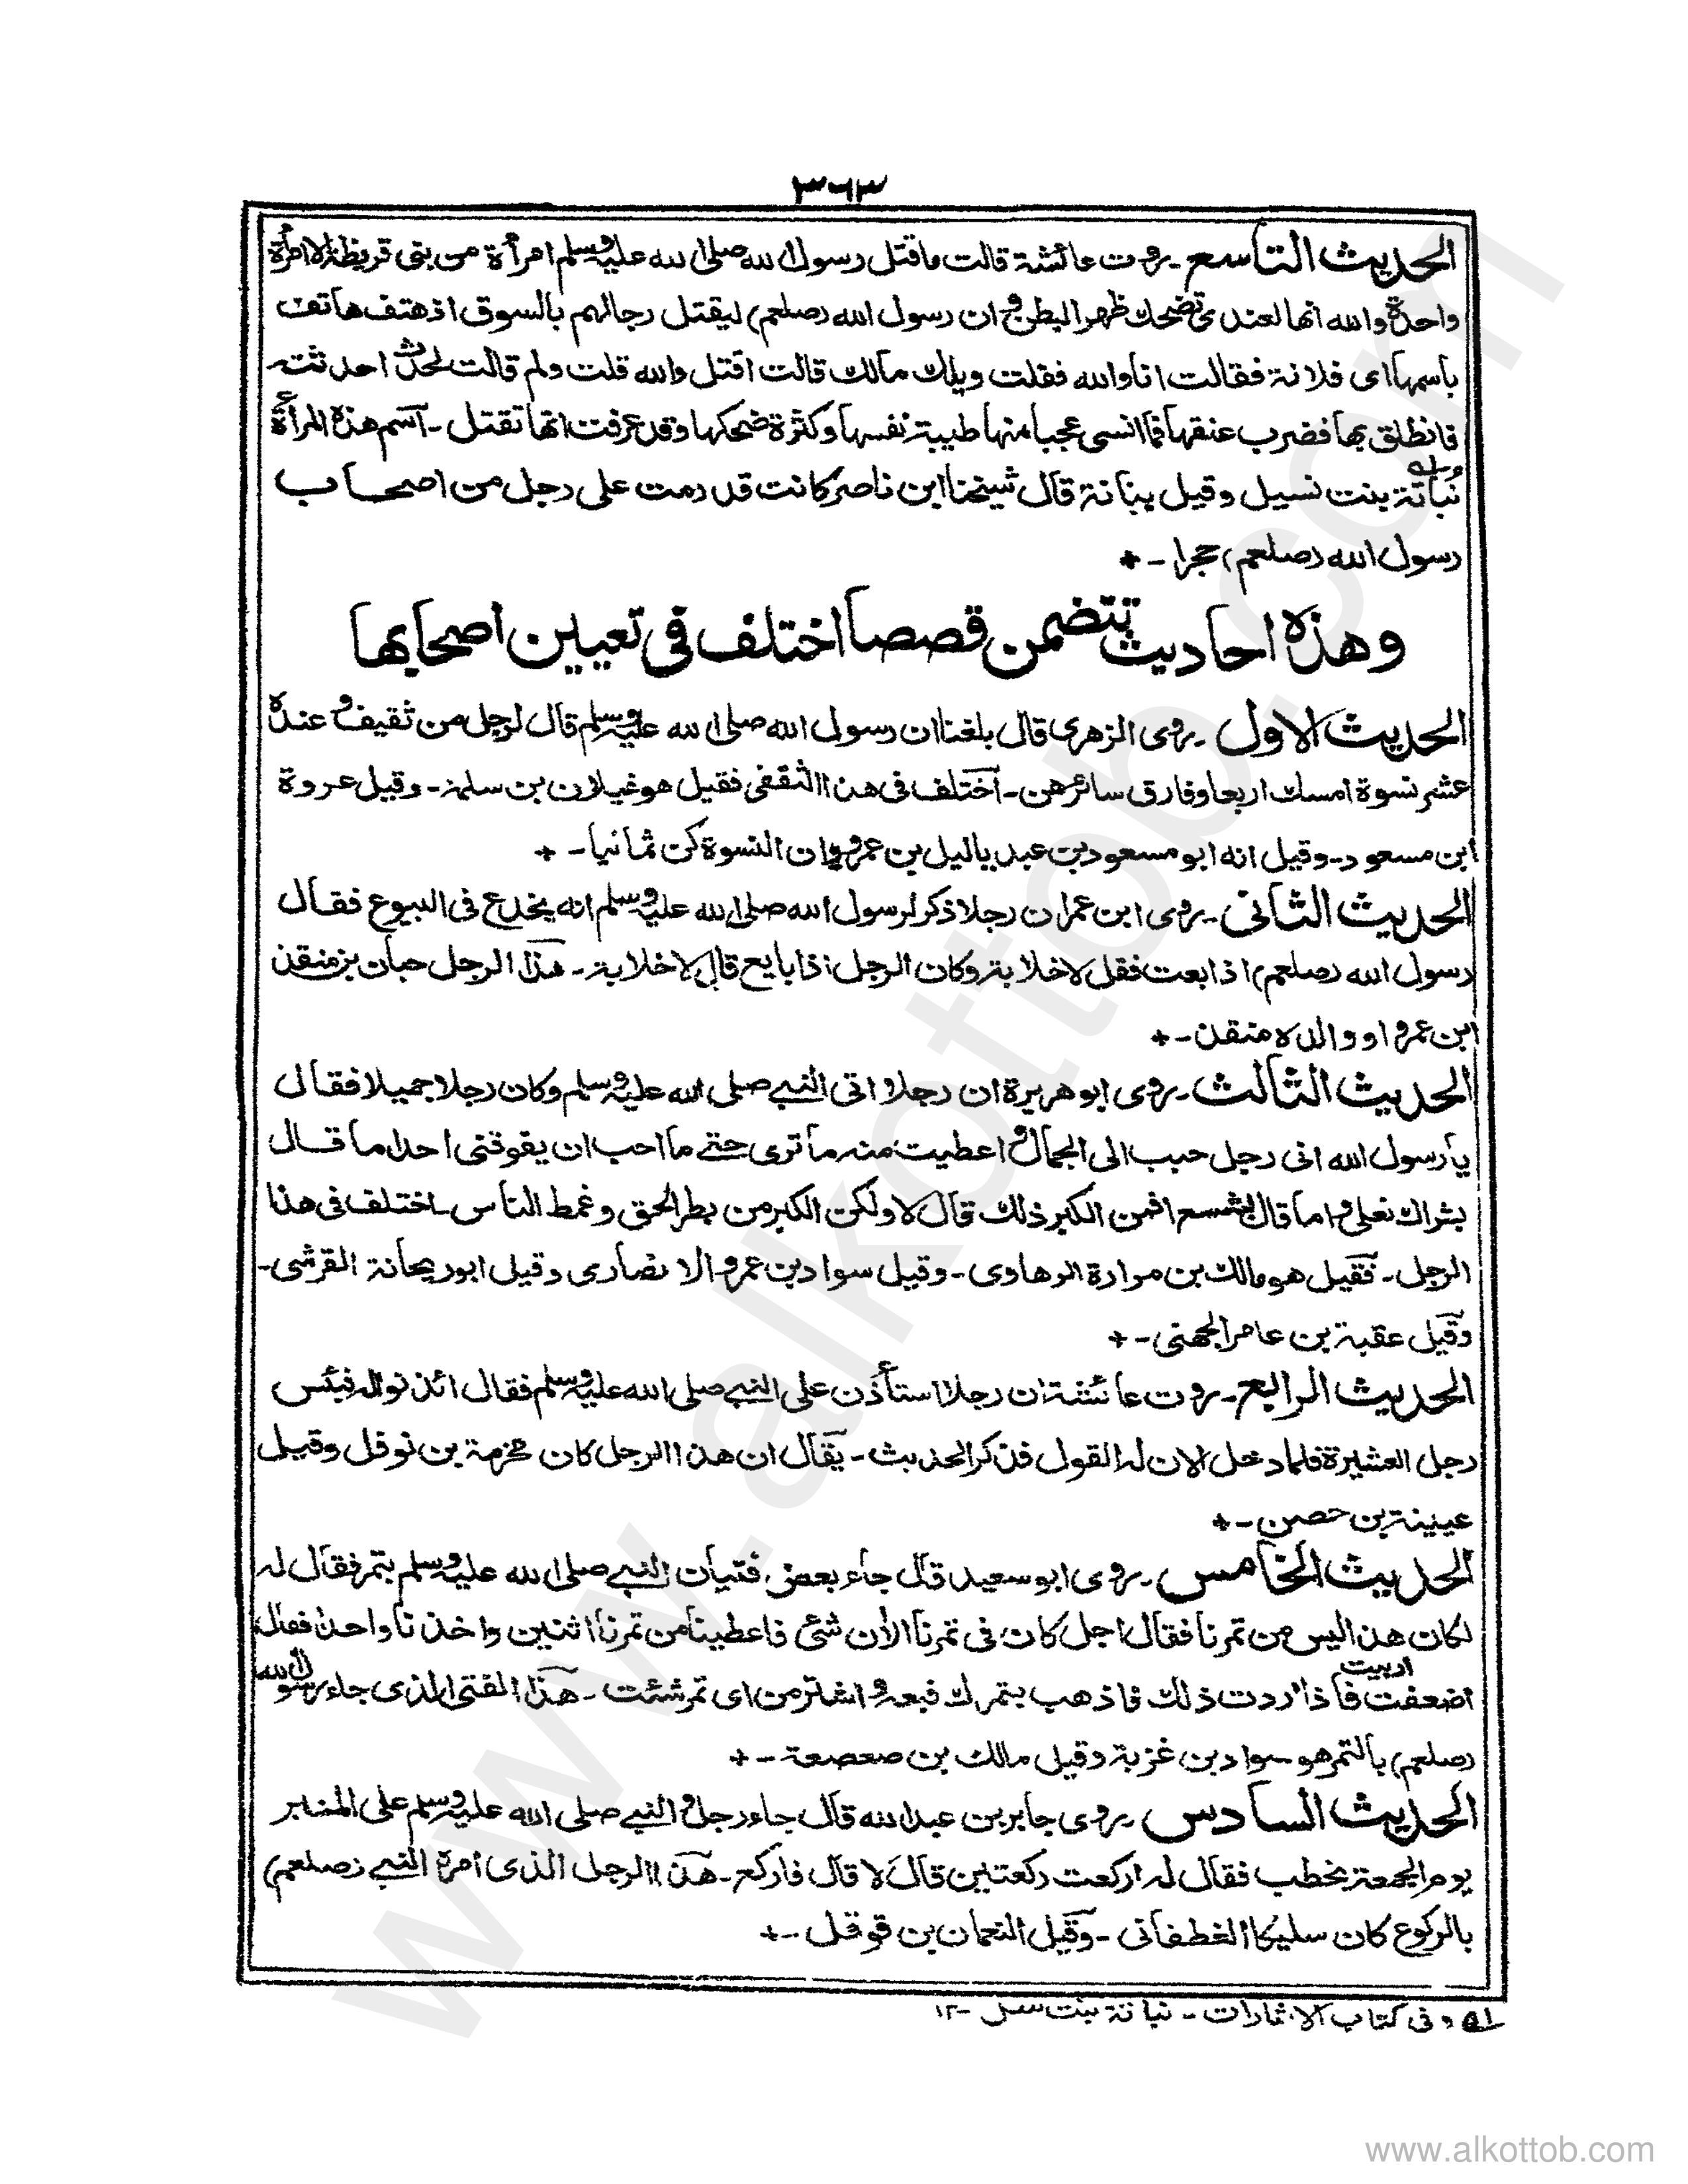 ٣٦٣
الحديث التاسع ـ روت عائشة قالت ما قتل رسول الله صلى الله عليه وسلم امرأة من بنى قريظة الا امرأة
واحدة والله انها لعندى تضحك ظهرا لبطن وان رسول الله (صلعم) ليقتل رجالهم بالسوق اذ هتف هاتف
باسمها اى فلانة فقالت انا والله فقلت ويلك مالك قالت اقتل والله قلت ولم قالت لحدث احدثته
فانطلق بها فضرب عنقها فما انسى عجبا منها طيبة نفسها وكثرة ضحكها وقد عرفت انها تقتل ـ اسم هذه المرأة
نُباتة بنت نسيل وقيل بنانة قال شيخنا ابن ناصر كانت قد رمت على رجل من اصحاب
رسول الله (صلعم) حجرا ـ +
وهذه احاديث تتضمن قصصا اختلف فى تعيين اصحابها
الحديث الاول ـ روى الزهرى قال بلغنا ان رسول الله صلى الله عليه وسلم قال لرجل من ثقيف وعنده
عشر نسوة امسك اربعا وفارق سائرهن ـ اختلف فى هذا الثقفى فقيل هو غيلان بن سلمة ـ وقيل عروة
ابن مسعود ـ وقيل انه ابو مسعود بن عبد ياليل بن عمرو وان النسوة كن ثمانيا ـ +
الحديث الثانى ـ روى ابن عمر ان رجلا ذكر لرسول الله صلى الله عليه وسلم انه يخدع فى البيوع فقال
رسول الله (صلعم) اذا بعت فقل لا خلابة وكان الرجل اذا بايع قال لا خلابة ـ هذا الرجل حبان بن منقذ
ابن عمرو او والده منقذ ـ +
الحديث الثالث ـ روى ابو هريرة ان رجلا اتى النبى صلى الله عليه وسلم وكان رجلا جميلا فقال
يا رسول الله انى رجل حبب الى الجمال واعطيت منه ما ترى حتى ما احب ان يفوقنى احد اما قال
بشراك نعلى واما قال بشسع افمن الكبر ذلك قال لا ولكن الكبر من بطر الحق وغمط الناس ـ اختلف فى هذا
الرجل ـ فقيل هو مالك بن مرارة الرهاوى ـ وقيل سواد بن عمرو الانصارى وقيل ابو ريحانة القرشى ـ
وقيل عقبة بن عامر الجهنى ـ +
الحديث الرابع ـ روت عائشة ان رجلا استأذن على النبى صلى الله عليه وسلم فقال ائذنوا له فبئس
رجل العشيرة فلما دخل الان له القول فذكر الحديث ـ يقال ان هذا الرجل كان مخرمة بن نوفل وقيل
عيينة بن حصن ـ +
الحديث الخامس ـ روى ابو سعيد قال جاء بعض فتيان النبى صلى الله عليه وسلم بتمر فقال له
لكان هذا ليس من تمرنا فقال اجل كان فى تمرنا الأن شئ فاعطينا من تمرنا اثنين واخذنا واحدا فقال
اضعفت اربيت فاذا اردت ذلك فاذهب بتمرك فبعه واشتر من اى تمر شئت ـ هذا الفتى الذى جاء رسول الله
(صلعم) بالتمر هو سواد بن غزية وقيل مالك بن صعصعة ـ +
الحديث السادس ـ روى جابر بن عبد الله قال جاء رجل والنبى صلى الله عليه وسلم على المنبر
يوم الجمعة يخطب فقال له اركعت ركعتين قال لا قال فاركع ـ هذا الرجل الذى امره النبى (صلعم)
بالركوع كان سليكا الغطفانى ـ وقيل النعمان بن قوقل ـ +
ا ه وفى كتاب الاشارات ـ نباتة بنت ـ ١٢
www.alkottob.com
www.alkottob.com